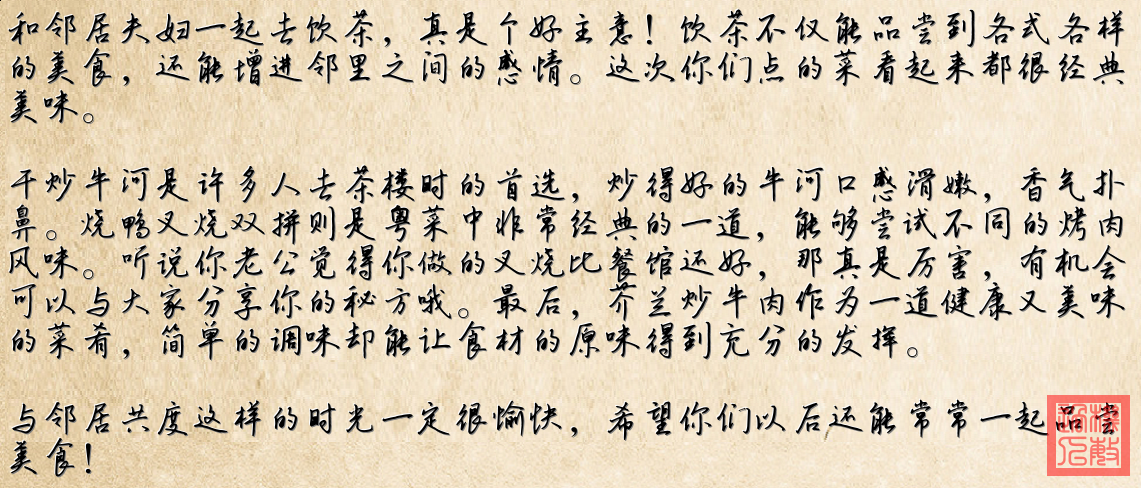 和邻居夫妇一起去饮茶，真是个好主意！饮茶不仅能品尝到各式各样
的美食，还能增进邻里之间的感情。这次你们点的菜看起来都很经典
美味。
干炒牛河是许多人去茶楼时的首选，炒得好的牛河口感滑嫩，香气扑
鼻。烧鸭叉烧双拼则是粤菜中非常经典的一道，能够尝试不同的烤肉
风味。听说你老公觉得你做的叉烧比餐馆还好，那真是厉害，有机会
可以与大家分享你的秘方哦。最后，芥兰炒牛肉作为一道健康又美味
的菜肴，简单的调味却能让食材的原味得到充分的发挥。
与邻居共度这样的时光一定很愉快，希望你们以后还能常常一起品尝
美食！